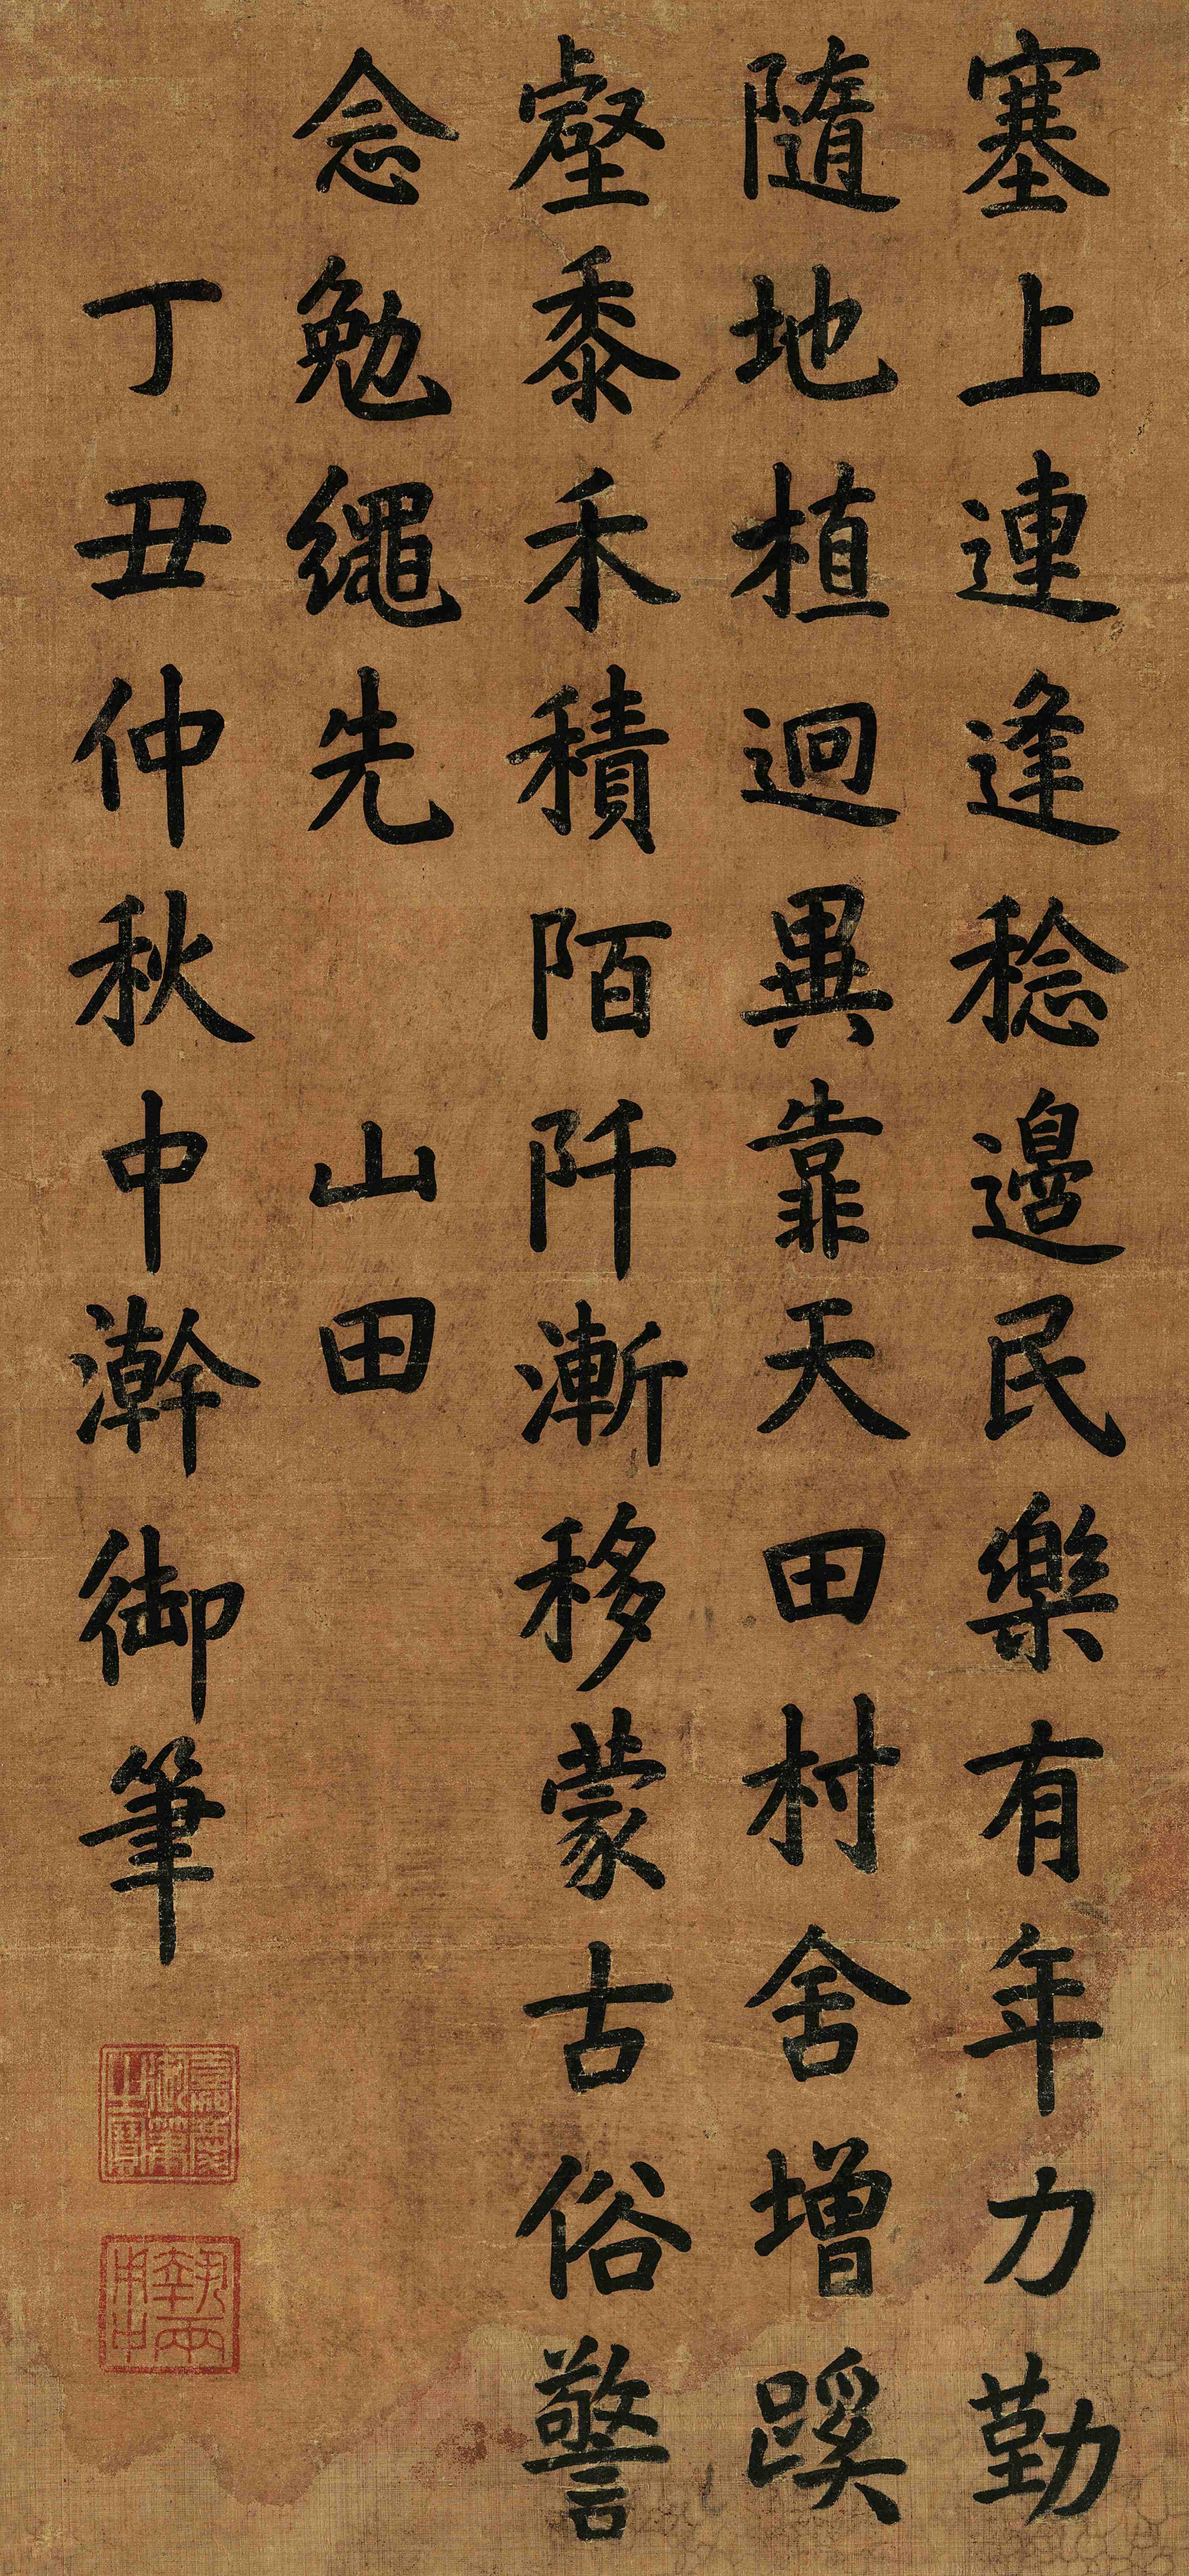 塞上連逢稔邊民樂有年力勤
隨地植迥異靠天田村舍增蹊
壑黍禾積陌阡漸移蒙古俗警
念勉繩先 山田
丁丑仲秋中澣御筆
嘉慶御筆之寶
執兩用中